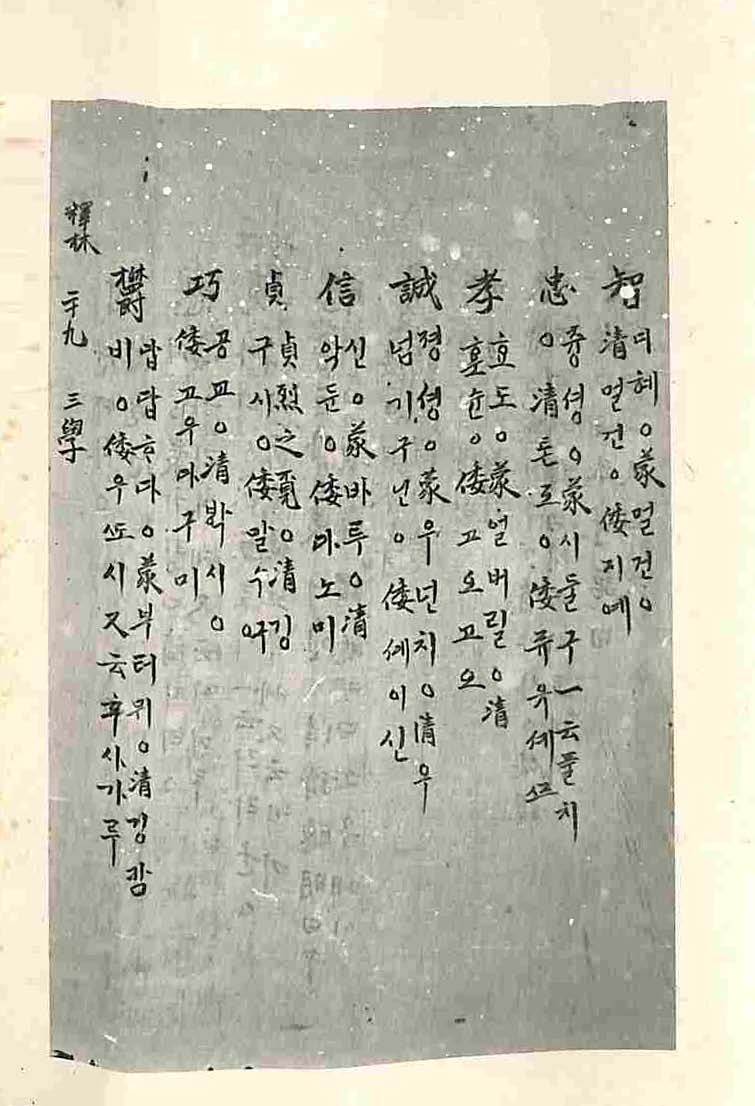 智 디혜○蒙멀건○
清멀건○倭지예
忠 즁셩○蒙시둘구一云툴치
○清톤포○倭류유셰ᇰ
孝 효도○蒙얼버릴○清
효슌○倭고오고오
誠 졍셩○蒙우넌치○清우
넘기구넌○倭셰이신
信 신○蒙바투○清
악둔○倭마노미
貞 貞烈之貞○清깅
구시○倭말수여구
巧 공교○清박시○
倭고우다구미
欝 답답ᄒᆞ다○蒙부터뮈○清깅캄
비○倭우ᄯᅩ시又云후사가루
釋林 二十九 三學